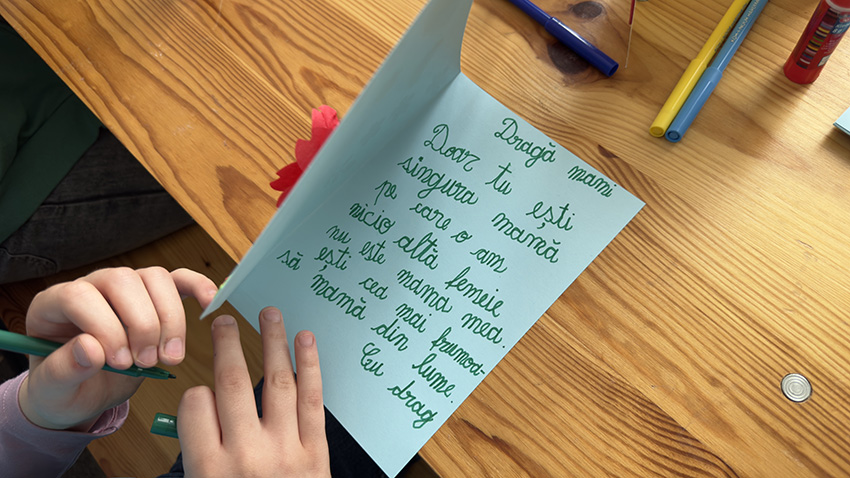 Dragă mami
Doar tu ești
singura mamă
pe care o am
nicio alta femeie
nu este mama mea.
să ești cea mai frumoa-
mamă din lume.
Cu drag